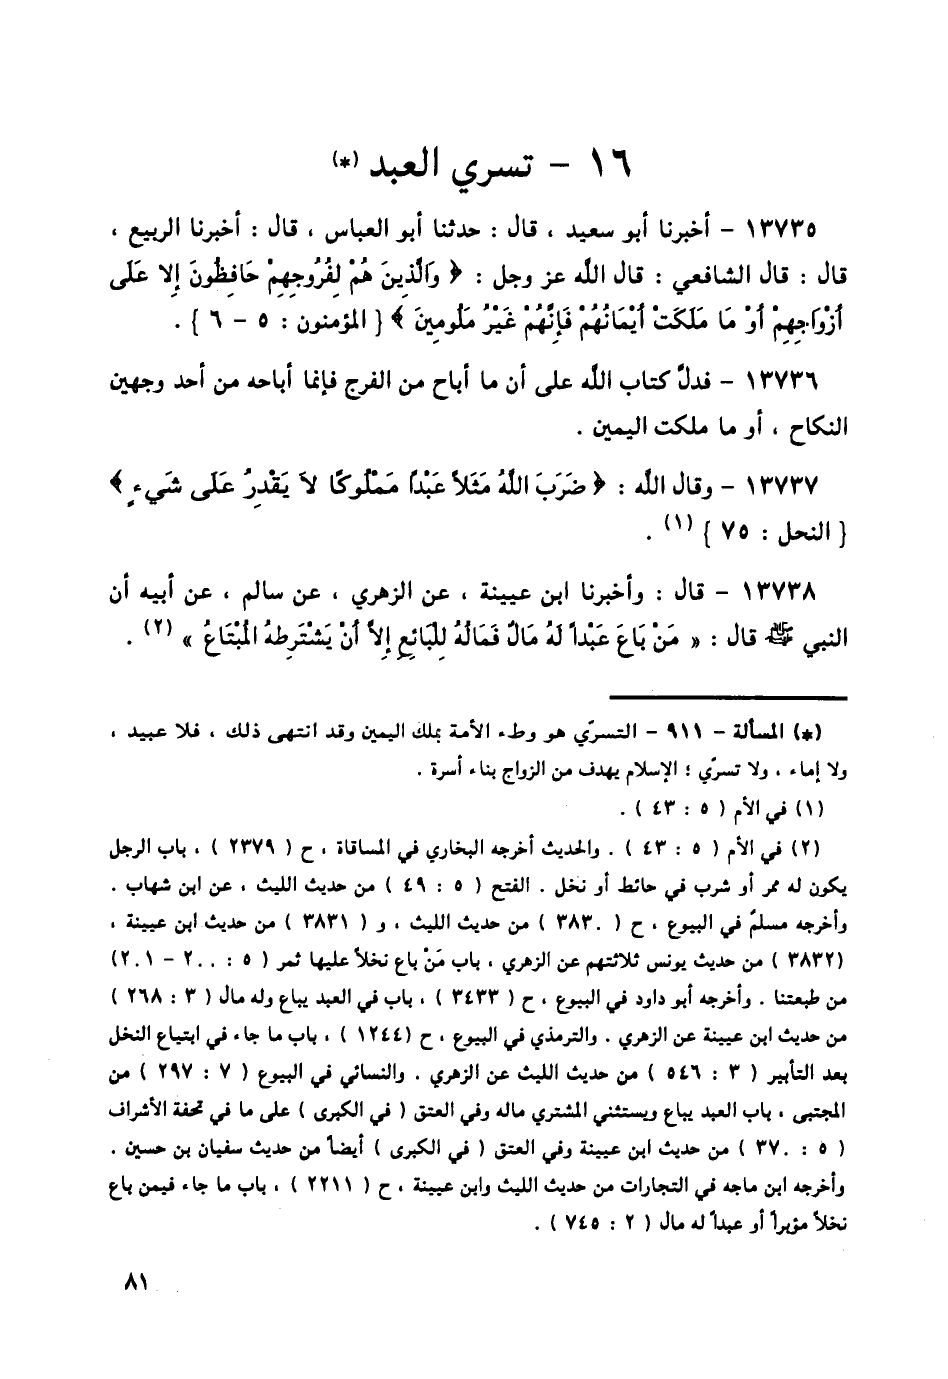 ١٦ - تسري العبد (*)
١٣٧٣٥ - أخبرنا أبو سعيد ، قال : حدثنا أبو العباس ، قال : أخبرنا الربيع ،
قال : قال الشافعي : قال الله عز وجل : ﴿ وَالَّذِينَ هُمْ لِفُرُوجِهِمْ حَافِظُونَ إِلا عَلَى
أَزْوَاجِهِمْ أَوْ مَا مَلَكَتْ أَيْمَانُهُمْ فَإِنَّهُمْ غَيْرُ مَلُومِينَ ﴾ { المؤمنون : ٥ - ٦ } .
١٣٧٣٦ - فدلّ كتاب الله على أن ما أباح من الفرج فإنما أباحه من أحد وجهين
النكاح ، أو ما ملكت اليمين .
١٣٧٣٧ - وقال الله : ﴿ ضَرَبَ اللَّهُ مَثَلاً عَبْدًا مَمْلُوكًا لاَ يَقْدِرُ عَلَى شَيْءٍ ﴾
{ النحل : ٧٥ } (١) .
١٣٧٣٨ - قال : وأخبرنا ابن عيينة ، عن الزهري ، عن سالم ، عن أبيه أن
النبي ﷺ قال : « مَنْ بَاعَ عَبْداً لَهُ مَالٌ فَمَالُهُ لِلْبَائِعِ إِلاَّ أَنْ يَشْتَرِطَهُ الْمُبْتَاعُ » (٢) .
(*) المسألة - ٩١١ - التسرّي هو وطء الأمة بملك اليمين وقد انتهى ذلك ، فلا عبيد ،
ولا إماء ، ولا تسرّي ؛ الإسلام يهدف من الزواج بناء أسرة .
(١) في الأم ( ٥ : ٤٣ ) .
(٢) في الأم ( ٥ : ٤٣ ) . والحديث أخرجه البخاري في المساقاة ، ح ( ٢٣٧٩ ) ، باب الرجل
يكون له ممر أو شرب في حائط أو نخل . الفتح ( ٥ : ٤٩ ) من حديث الليث ، عن ابن شهاب .
وأخرجه مسلمٌ في البيوع ، ح ( ٣٨٣٠ ) من حديث الليث ، و ( ٣٨٣١ ) من حديث ابن عيينة ،
(٣٨٣٢ ) من حديث يونس ثلاثتهم عن الزهري ، باب مَنْ باع نخلاً عليها ثمر ( ٥ : ٢٠٠ - ٢٠١)
من طبعتنا . وأخرجه أبو داود في البيوع ، ح ( ٣٤٣٣ ) ، باب في العبد يباع وله مال ( ٣ : ٢٦٨ )
من حديث ابن عيينة عن الزهري . والترمذي في البيوع ، ح (١٢٤٤ ) ، باب ما جاء في ابتياع النخل
بعد التأبير ( ٣ : ٥٤٦ ) من حديث الليث عن الزهري . والنسائي في البيوع ( ٧ : ٢٩٧ ) من
المجتبى ، باب العبد يباع ويستثني المشتري ماله وفي العتق ( في الكبرى ) على ما في تحفة الأشراف
( ٥ : ٣٧٠ ) من حديث ابن عيينة وفي العتق ( في الكبرى ) أيضاً من حديث سفيان بن حسين .
وأخرجه ابن ماجه في التجارات من حديث الليث وابن عيينة ، ح ( ٢٢١١ ) ، باب ما جاء فيمن باع
نخلاً مؤبراً أو عبداً له مال ( ٢ : ٧٤٥ ) .
٨١